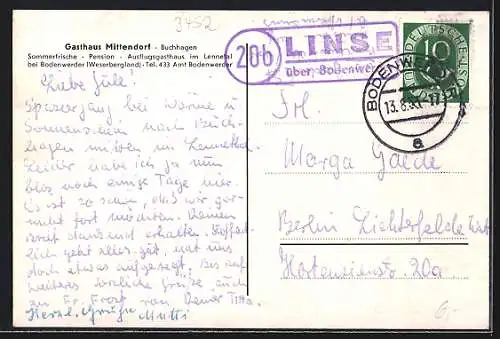 3452
Gasthaus Mittendorf - Buchhagen
Sommerfrische - Pension - Ausflugsgasthaus im Lennetal
bei Bodenwerder (Weserbergland) - Tel. 433 Amt Bodenwerder
20b LINSE
über Bodenwerder
DEUTSCHE POST
10
BODENWERDER
13.8.53.-17
a
Liebe Gülle!
Spaziergang bei Wärme u.
Sonnenschein nach Buch-
hagen mitten im Lennethal.
Leider habe ich ja nun
bloß noch einige Tage hier.
Es ist so schön, daß wir gar-
nicht fort möchten. Deinen
Brief dankend erhalten. Hoffent-
lich geht alles gut, hat uns
doch etwas aufgeregt. Bis auf
weiteres herzliche Grüße auch
zu Fr. Frost von Deiner
Herzl. Grüße Mutti
Frl.
Marga Gaede
Berlin Lichterfelde West
Hortensienstr. 20a
6,-